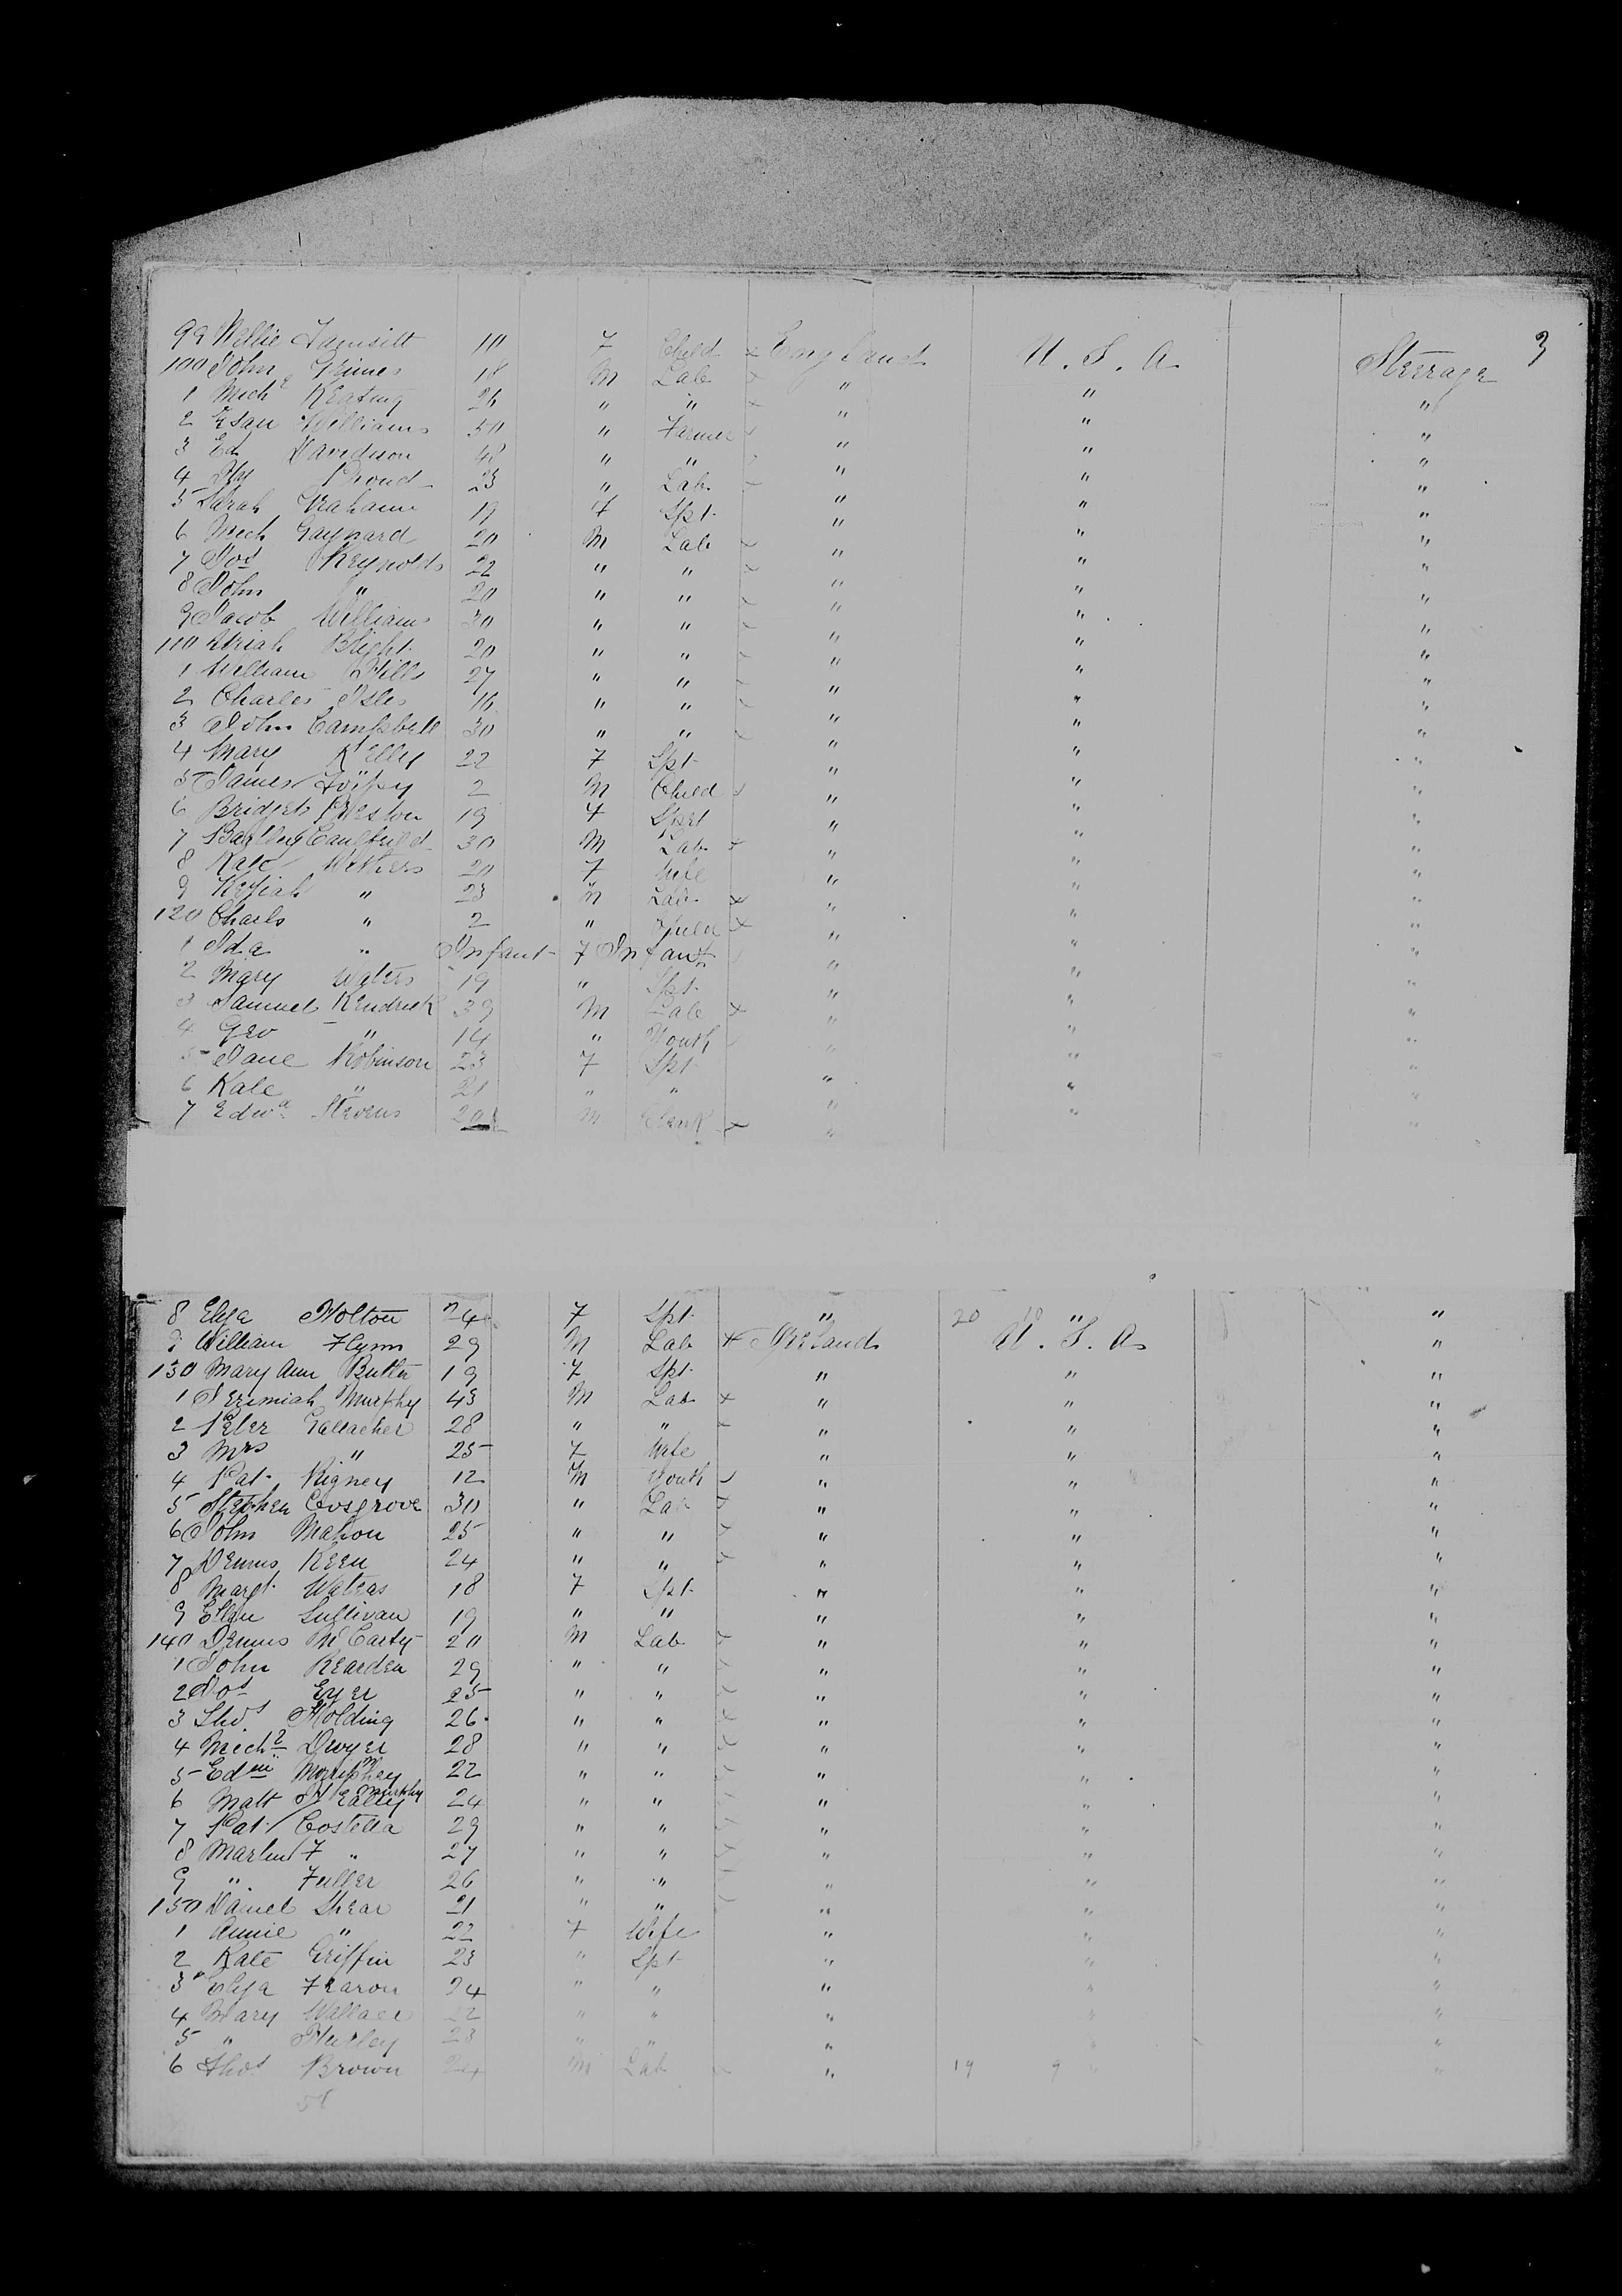 3
99 Nellie 10 7 Child England U. S. A. Steerage
100 John Grimes 18 M Lab " " "
1 Mich Keating 26 " " " " "
2 Esau Williams 50 " Farmer " " "
3 Ed Davidson 48 " " " " "
4 Proud 23 " Lab " " "
5 Sarah Graham 19 7 Spt. " " "
6 Mich Gaynard 20 M Lab " " "
7 Jos Reynolds 22 " " " " "
8 John " 20 " " " " "
9 Jacob Williams 30 " " " " "
110 Uriah Blight 20 " " " " "
1 William Hills 27 " " " " "
2 Charles Isles 16 " " " " "
3 John Campbell 30 " " " " "
4 Mary Kelly 22 7 Spt " " "
5 James 2 M Child " " "
6 Bridget Preston 19 7 Spt " " "
7 Caulfield 30 M Lab + " " "
8 Kate Withers 20 7 Wife " " "
9 Keziah " 23 M Lab + " " "
120 Charls " 2 " Child + " " "
1 Ida " Infant 7 Infant " " "
2 Mary Waters 19 " Spt. " " "
3 Samuel Kendrick 39 M Lab + " " "
4 Geo " 14 " Youth " " "
5 Jane Robinson 23 7 Spt " " "
6 Kate " 21 " " " " "
7 Edwd Stevens 20 M Clerk " " "
8 Eliza Holton 24 7 Spt. " 20 10 " "
9 William Flynn 29 M Lab + Ireland U. S. A. "
130 Mary Ann Butler 19 7 Spt. " " "
1 Jeremiah Murphy 43 M Lab + " " "
2 Peter Gallacher 28 " " " " "
3 Mrs " 25 7 Wife " " "
4 Pat. Rigney 12 M Youth " " "
5 Stephen Cosgrove 30 " Lab " " "
6 John Mahon 25 " " " " "
7 Dennis Keen 24 " " " " "
8 Margt. Waters 18 7 Spt. " " "
9 Ellen Sullivan 19 " " " " "
140 Dennis McCarty 20 M Lab " " "
1 John Rearden 29 " " " " "
2 Jos Eyer 25 " " " " "
3 Thos Holding 26 " " " " "
4 Michl Dwyer 28 " " " " "
5 Edm 22 " " " " "
6 Matt Murphy 24 " " " " "
7 Pat. Costella 29 " " " " "
8 Martin F " 27 " " " " "
9 " Fuller 26 " " " " "
150 Daniel Shear 21 " " " " "
1 Annie " 22 7 Wife " " "
2 Kate Griffin 23 " Spt " " "
3 Eliza Fearon 24 " " " " "
4 Mary Wallace 22 " " " " "
5 " Hurley 23 " " " " "
6 Thos Brown 24 M Lab " 19 9 " "
58